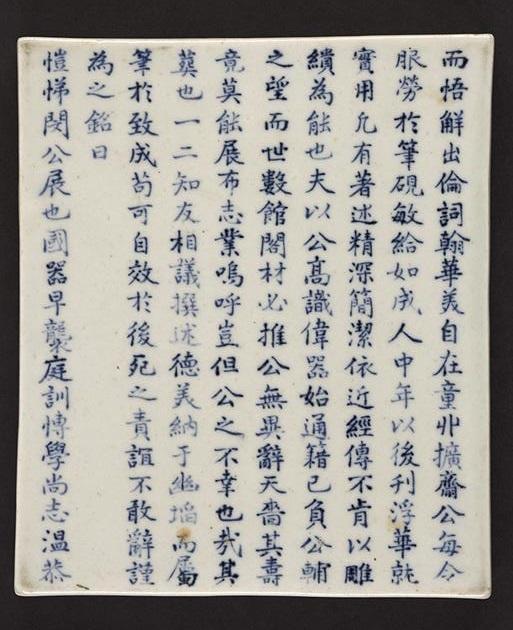 而悟解出倫詞翰華美自在童丱擴齋公每令
服勞於筆硯敏給如成人中年以後刋浮華就
實用凡有著述精深簡潔依近經傳不肯以雕
繢為能也夫以公高識偉器始通籍已負公輔
之望而世數館閣材必推公無異辭天嗇其壽
竟莫能展布志業嗚呼豈但公之不幸也㢤其
葬也一二知友相議撰述德美納于幽堩而屬
筆於致成苟可自效於後死之責誼不敢辭謹
為之銘曰
愷悌閔公展也國器早襲庭訓博學尚志溫恭